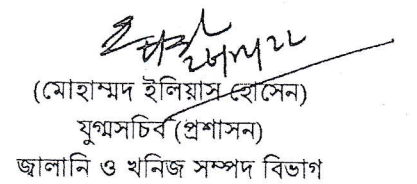 (মোহাম্মদ ইলিয়াস হোসেন)
যুগ্মসচিব (প্রশাসন)
জ্বালানি ও খনিজ সম্পদ বিভাগ